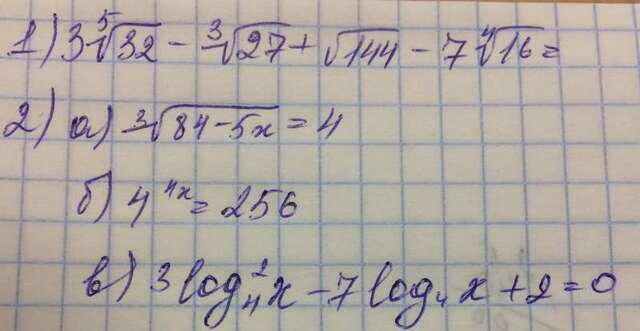 1) 3⁵√32 - ³√27 + √144 - 7⁴√16 =
2) а) ³√84-5x = 4
б) 4⁴ˣ = 256
в) 3 log₄²x - 7 log₄ x + 2 = 0